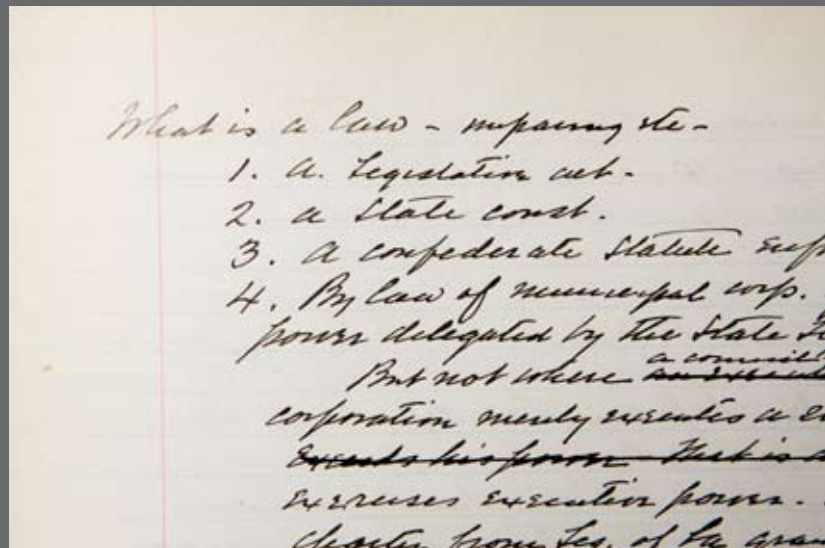 What is a law - impairing etc -
1. A. Legislative act.
2. a State const.
3. A confederate Statute
4. By law of municipal corp.
power delegated by the State
But not where a council
corporation merely executes a
executes his power That is
exercises executive power.
charter from Leg. of La